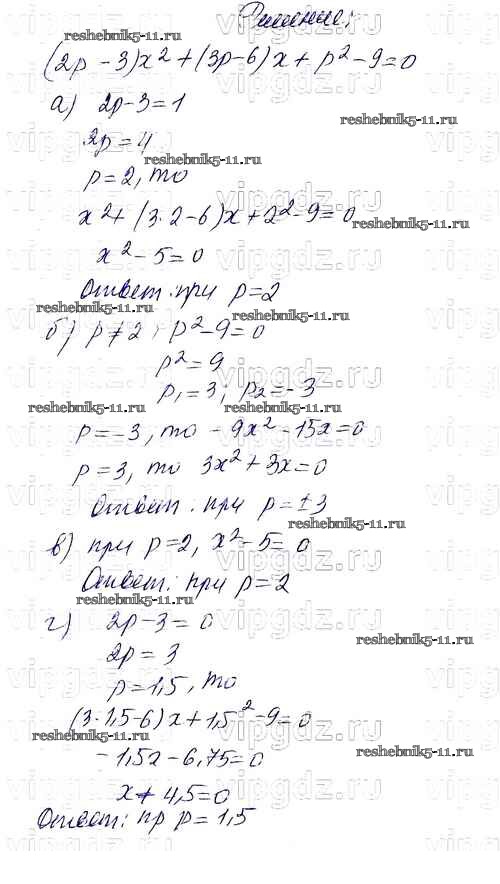 Решение:
reshebnik5-11.ru
(2p - 3)x² + (3p - 6)x + p² - 9 = 0
а) 2p - 3 = 1
reshebnik5-11.ru
2p = 4
reshebnik5-11.ru
p = 2, то
x² + (3·2 - 6)x + 2² - 9 = 0
reshebnik5-11.ru
x² - 5 = 0
Ответ: при p = 2
reshebnik5-11.ru
б) p ≠ 2, p² - 9 = 0
reshebnik5-11.ru
p² = 9
p₁ = 3; p₂ = -3
reshebnik5-11.ru reshebnik5-11.ru
p = -3, то - 9x² - 15x = 0
p = 3, то 3x² + 3x = 0
Ответ. при p = ±3
reshebnik5-11.ru
в) при p = 2, x² - 5 = 0
Ответ: при p = 2
reshebnik5-11.ru
г) 2p - 3 = 0
reshebnik5-11.ru
2p = 3
p = 1,5, то
(3·1,5 - 6)x + 1,5² - 9 = 0
reshebnik5-11.ru
reshebnik5-11.ru
- 1,5x - 6,75 = 0
x + 4,5 = 0
Ответ: пр p = 1,5
vipgdz.ru